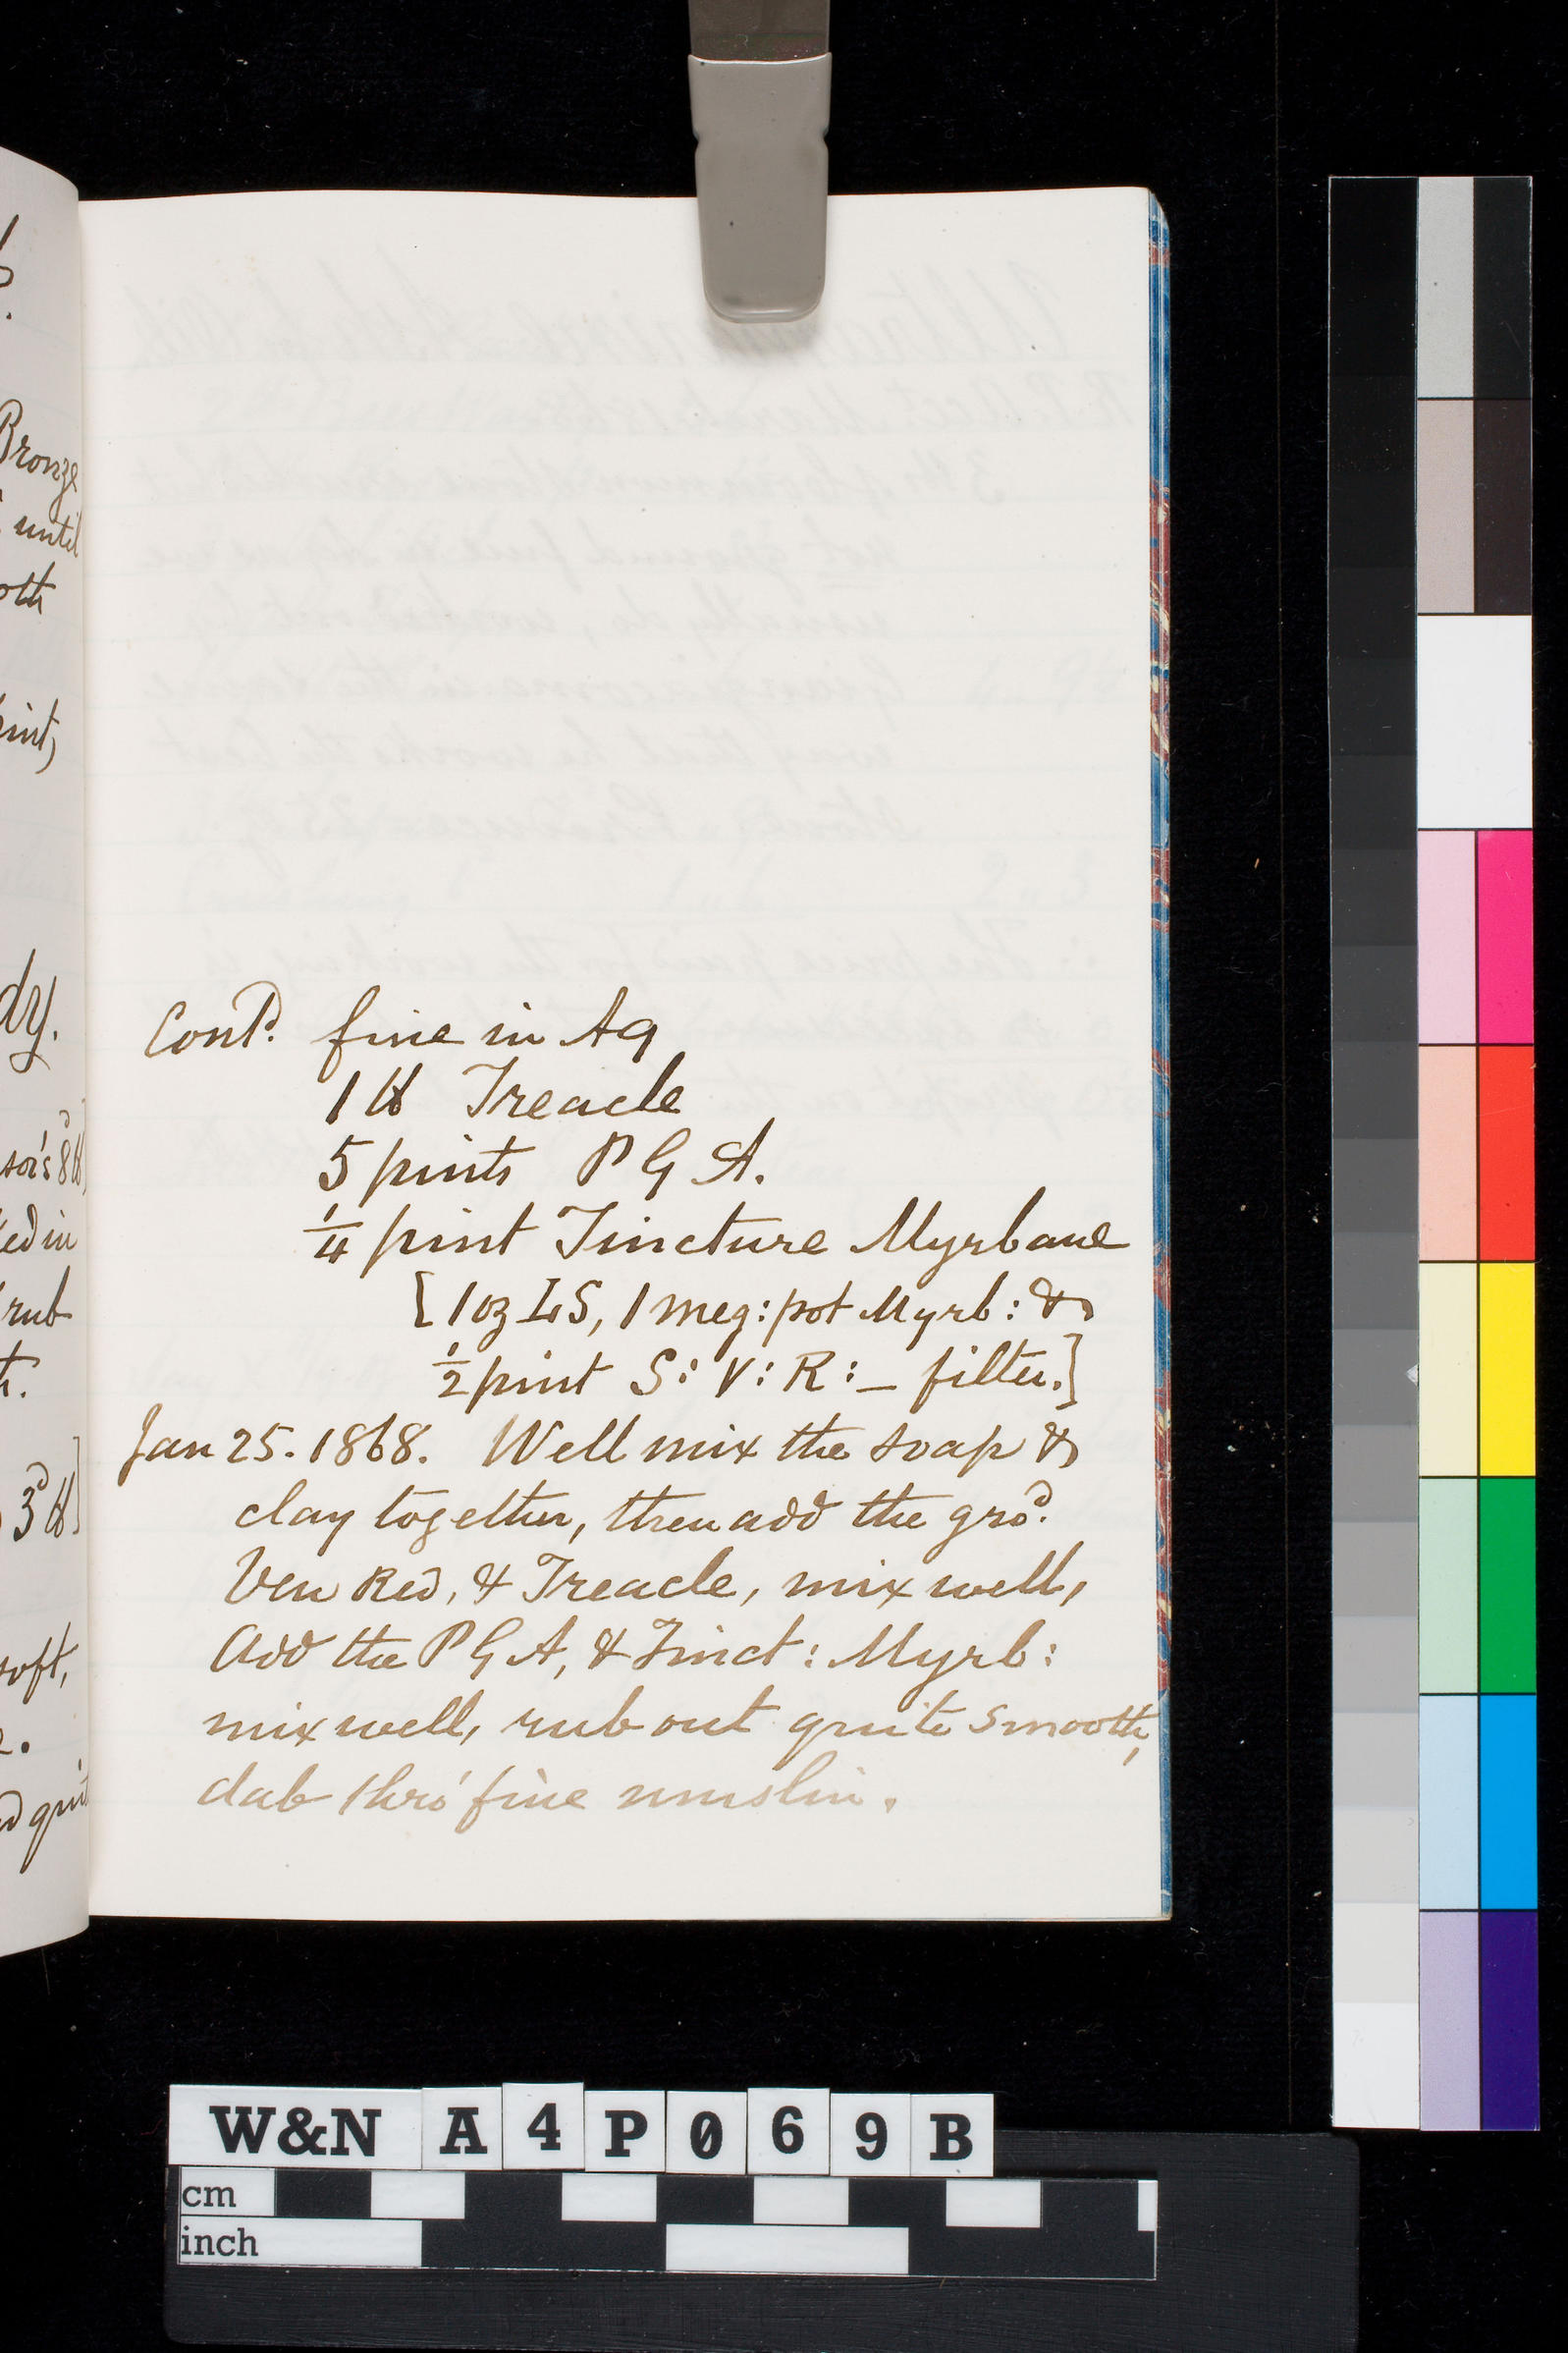 Bronze
until
oth
pint,
dy.
soi's 8 lb
ed in
rub
3d lb]
soft,
Contd. fine in Aq
1 lb Treacle
5 pints P G A.
1/4 pint Tincture Myrbane
[1 oz LS, 1 meg: pot Myrb: &
1/2 pint S: V: R: – filter.]
Jan 25. 1868. Well mix the soap &
clay together, then add the grod.
Ven Red, & Treacle, mix well,
Add the P G A, & Tinct: Myrb:
mix well, rub out quite smooth,
dab thro' fine muslin.
W&N A4P069B
cm
inch